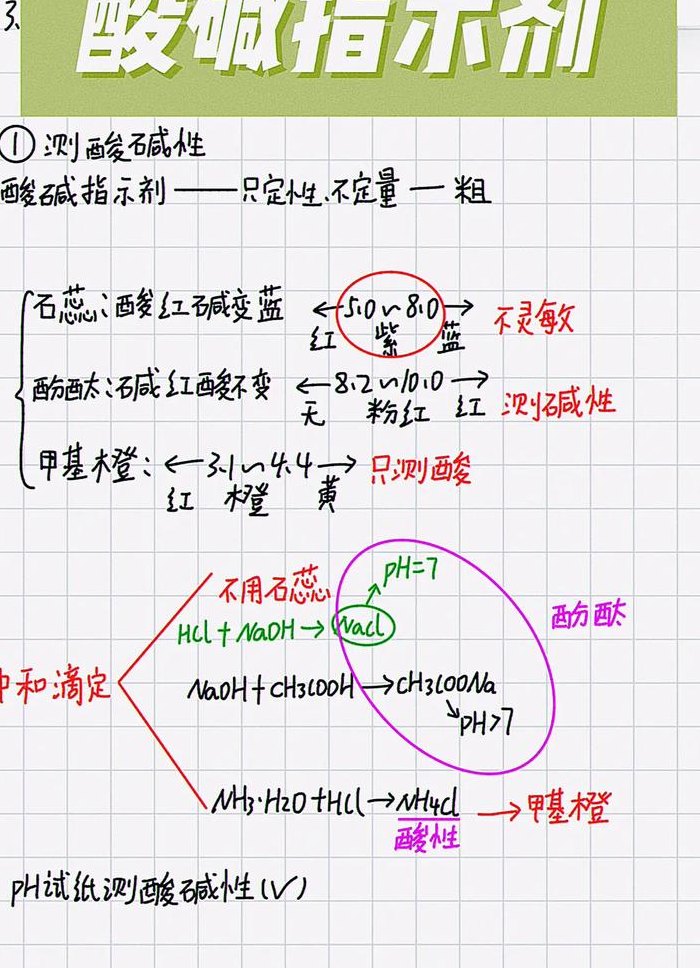 3、
酸碱指示剂
① 测酸碱性
酸碱指示剂——只定性、不定量—粗
石蕊:酸红碱变蓝 ←5.0~8.0→ 不灵敏
红 紫 蓝
酚酞:碱红酸不变 ←8.2~10.0→ 测碱性
无 粉红 红
甲基橙:←3.1~4.4→ 只测酸
红 橙 黄
pH=7
不用石蕊
HCl+NaOH→NaCl
酚酞
中和滴定
NaOH+CH3COOH→CH3COONa
pH>7
NH3·H2O+HCl→NH4Cl→甲基橙
酸性
pH试纸测酸碱性(√)